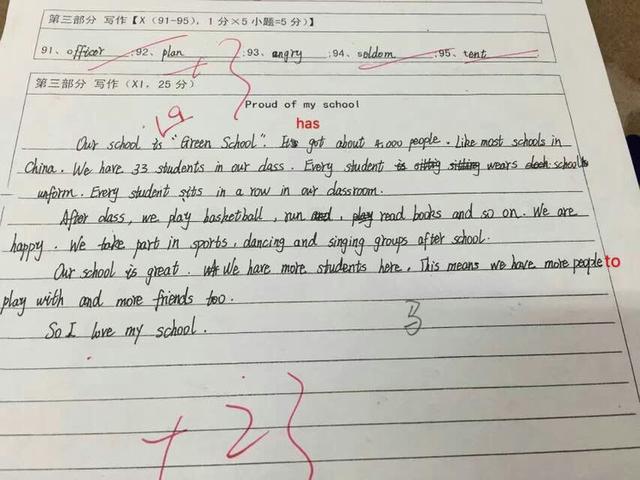 第三部分 写作【X（91-95），1分×5小题=5分）】
91、officer ;92、plan ;93、angry 94、seldom ;95、tent ;
第三部分 写作（XI，25分）
Proud of my school
19
has
Our school is "Green School". It's got about 4.000 people. Like most schools in
China. We have 33 students in our class. Every student wears school's
unform. Every student sits in a row in our classroom.
After class, we play basketball, run, read books and so on. We are
happy. We take part in sports, dancing and singing groups after school.
Our school is great. We have more students here. This means we have more people to
play with and more friends too.
So I love my school.
3
+2